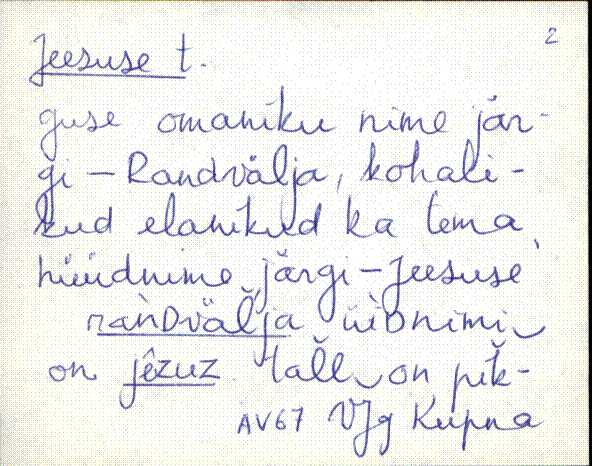 2
Jeesuse t.
guse omaniku nime jär-
gi — Randvälja, kohali-
kud elanikud ka tema
hüüdnime järgi — Jeesuse
rand̀väĺja üìDnimi
on jêzuz. tall on pik-
AV67 VJg Kupna